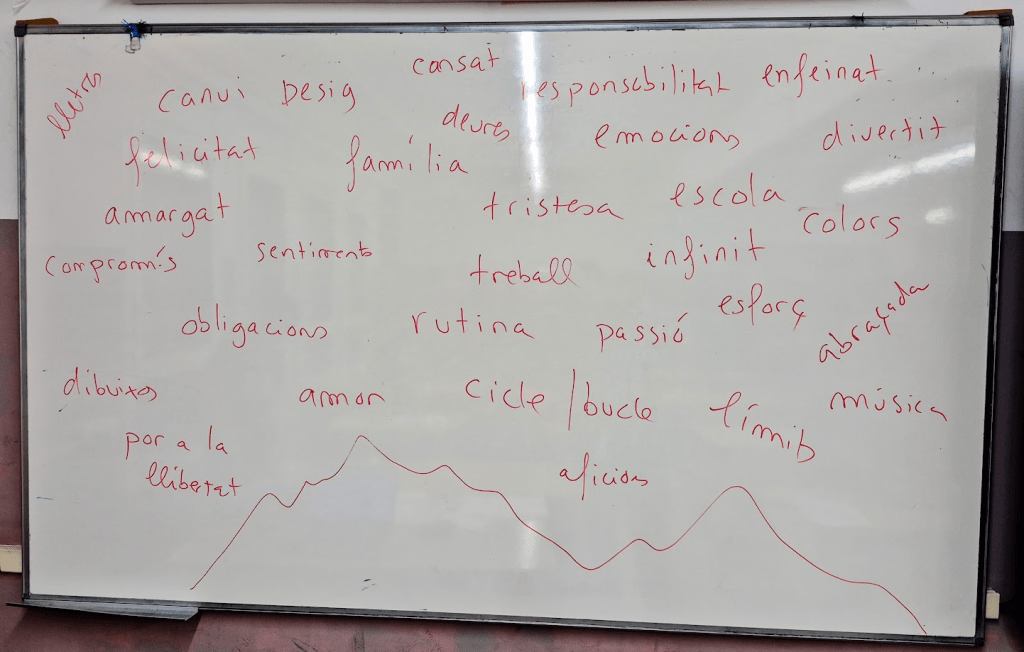 cansat
lletres
canui Desig
responsabilitat enfeinat
deures
emocions
divertit
felicitat
família
escola
amargat
tristesa
colors
compromís
sentiments
treball
infinit
esforç
obligacions
rutina
passió
abraçada
dibuixos
amor
cicle/bucle
límits
música
por a la
llibertat
aficions